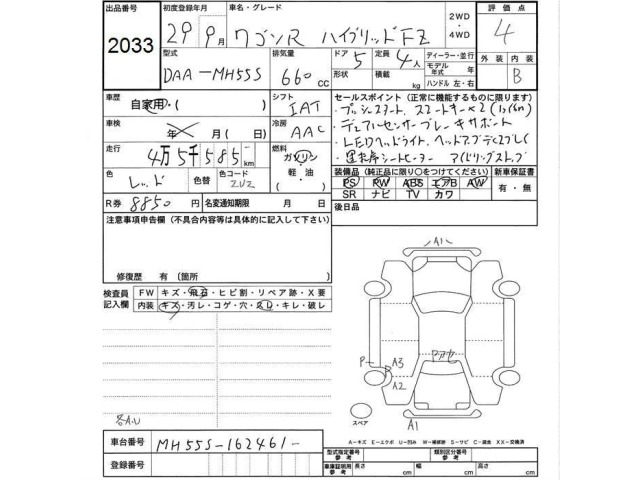 出品番号 2033
初度登録年月 29年 9月
車名・グレード ワゴンR ハイブリッドFZ
2WD・4WD
評価点 4
型式 DAA-MH55S
排気量 660 cc
ドア 5
定員 4人
形状
積載 kg
ディーラー・並行
モデル年式 年
ハンドル 左・右
外装
内装 B
車歴 自家用・( )
シフト IAT
車検 年 月 ( 日)
冷房 AAC
走行 4万5千585 km
燃料 ガソリン・軽油・( )
色 レッド
色替
色コード ZU2
R券 8850 円
名変通知期限 月 日
セールスポイント(正常に機能するものに限ります)
・プッシュスタート、スマートキー×2
・デュアルセンサーブレーキサポート
・LEDヘッドライト、ヘッドアップディスプレイ
・運転席シートヒーター アイドリングストップ
装備品(純正品に限り○をつけてください)
PS PW ABS エアB AW
SR ナビ TV カワ
新車保証書 有・無
後日品
注意事項申告欄(不具合内容等は具体的に記入して下さい)
修復歴 有(箇所 )
検査員記入欄
FW キズ・飛石・ヒビ割・リペア跡・X要
内装 キズ・汚レ・コゲ・穴・スレ・キレ・破レ
A1
P
P
A3
A2
A1
スペア
各A.U
A-キズ E-エクボ U-凹み W-補修跡 S-サビ C-腐食 XX-交換済
車台番号 MH55S-162461-
登録番号
型式指定番号 参考
類別区分番号 参考
車庫証明用 参考 長さ cm 幅 cm 高さ cm